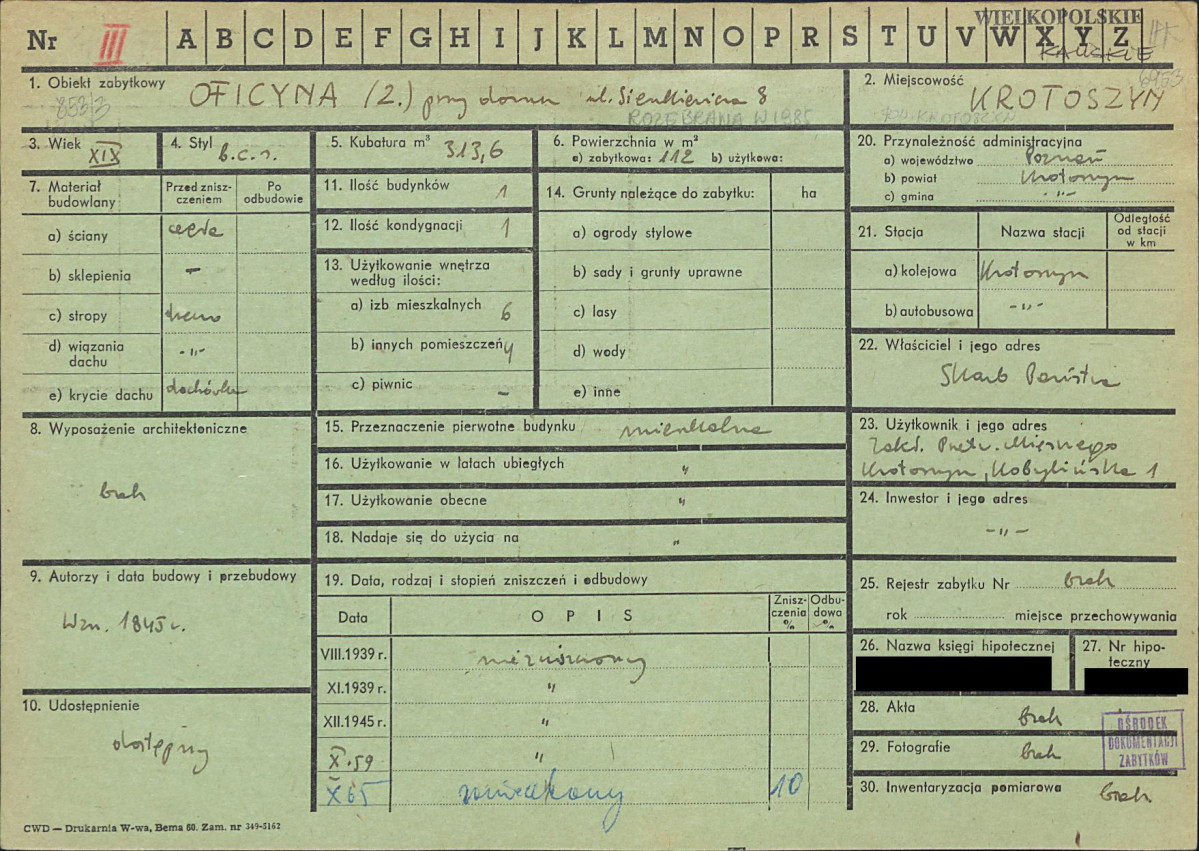 Nr III A B C D E F G H I J K L M N O P R S T U V W X Y Z
WIELKOPOLSKIE
KALISKIE
1. Obiekt zabytkowy OFICYNA (2.) przy domu ul. Sienkiewicza 8
853/3
ROZEBRANA W 1985
2. Miejscowość
6953
KROTOSZYN
3. Wiek XIX
4. Styl b.c.s.
5. Kubatura m³ 313,6
6. Powierzchnia w m²
a) zabytkowa: 112 b) użytkowa:
20. Przynależność administracyjna
a) województwo Poznań
b) powiat Krotoszyn
c) gmina -"-
7. Materiał budowlany
Przed zniszczeniem
Po odbudowie
a) ściany cegła
b) sklepienia –
c) stropy drewno
d) wiązania dachu -"-
e) krycie dachu dachówka
11. Ilość budynków 1
12. Ilość kondygnacji 1
13. Użytkowanie wnętrza
według ilości:
a) izb mieszkalnych 6
b) innych pomieszczeń 4
c) piwnic –
14. Grunty należące do zabytku: ha
a) ogrody stylowe
b) sady i grunty uprawne
c) lasy
d) wody
e) inne
21. Stacja Nazwa stacji Odległość od stacji w km
a) kolejowa Krotoszyn
b) autobusowa -"-
22. Właściciel i jego adres
Skarb Państwa
8. Wyposażenie architektoniczne
brak
15. Przeznaczenie pierwotne budynku mieszkalne
16. Użytkowanie w latach ubiegłych "
17. Użytkowanie obecne "
18. Nadaje się do użycia na "
23. Użytkownik i jego adres
Zakł. Przetw. Mięsnego
Krotoszyn, Kobylińska 1
24. Inwestor i jego adres
-"-
9. Autorzy i data budowy i przebudowy
Wzn. 1845 r.
19. Data, rodzaj i stopień zniszczeń i odbudowy
Data O P I S Zniszczenia % Odbudowa %
VIII.1939 r. niezniszczony
XI.1939 r. "
XII.1945 r. "
X.59 "
X 65 zamieszkany 10
25. Rejestr zabytku Nr brak
rok miejsce przechowywania
26. Nazwa księgi hipotecznej
27. Nr hipoteczny
10. Udostępnienie
dostępny
28. Akta brak
29. Fotografie brak
30. Inwentaryzacja pomiarowa brak
OŚRODEK
DOKUMENTACJI
ZABYTKÓW
CWD — Drukarnia W-wa, Bema 60. Zam. nr 349-5162